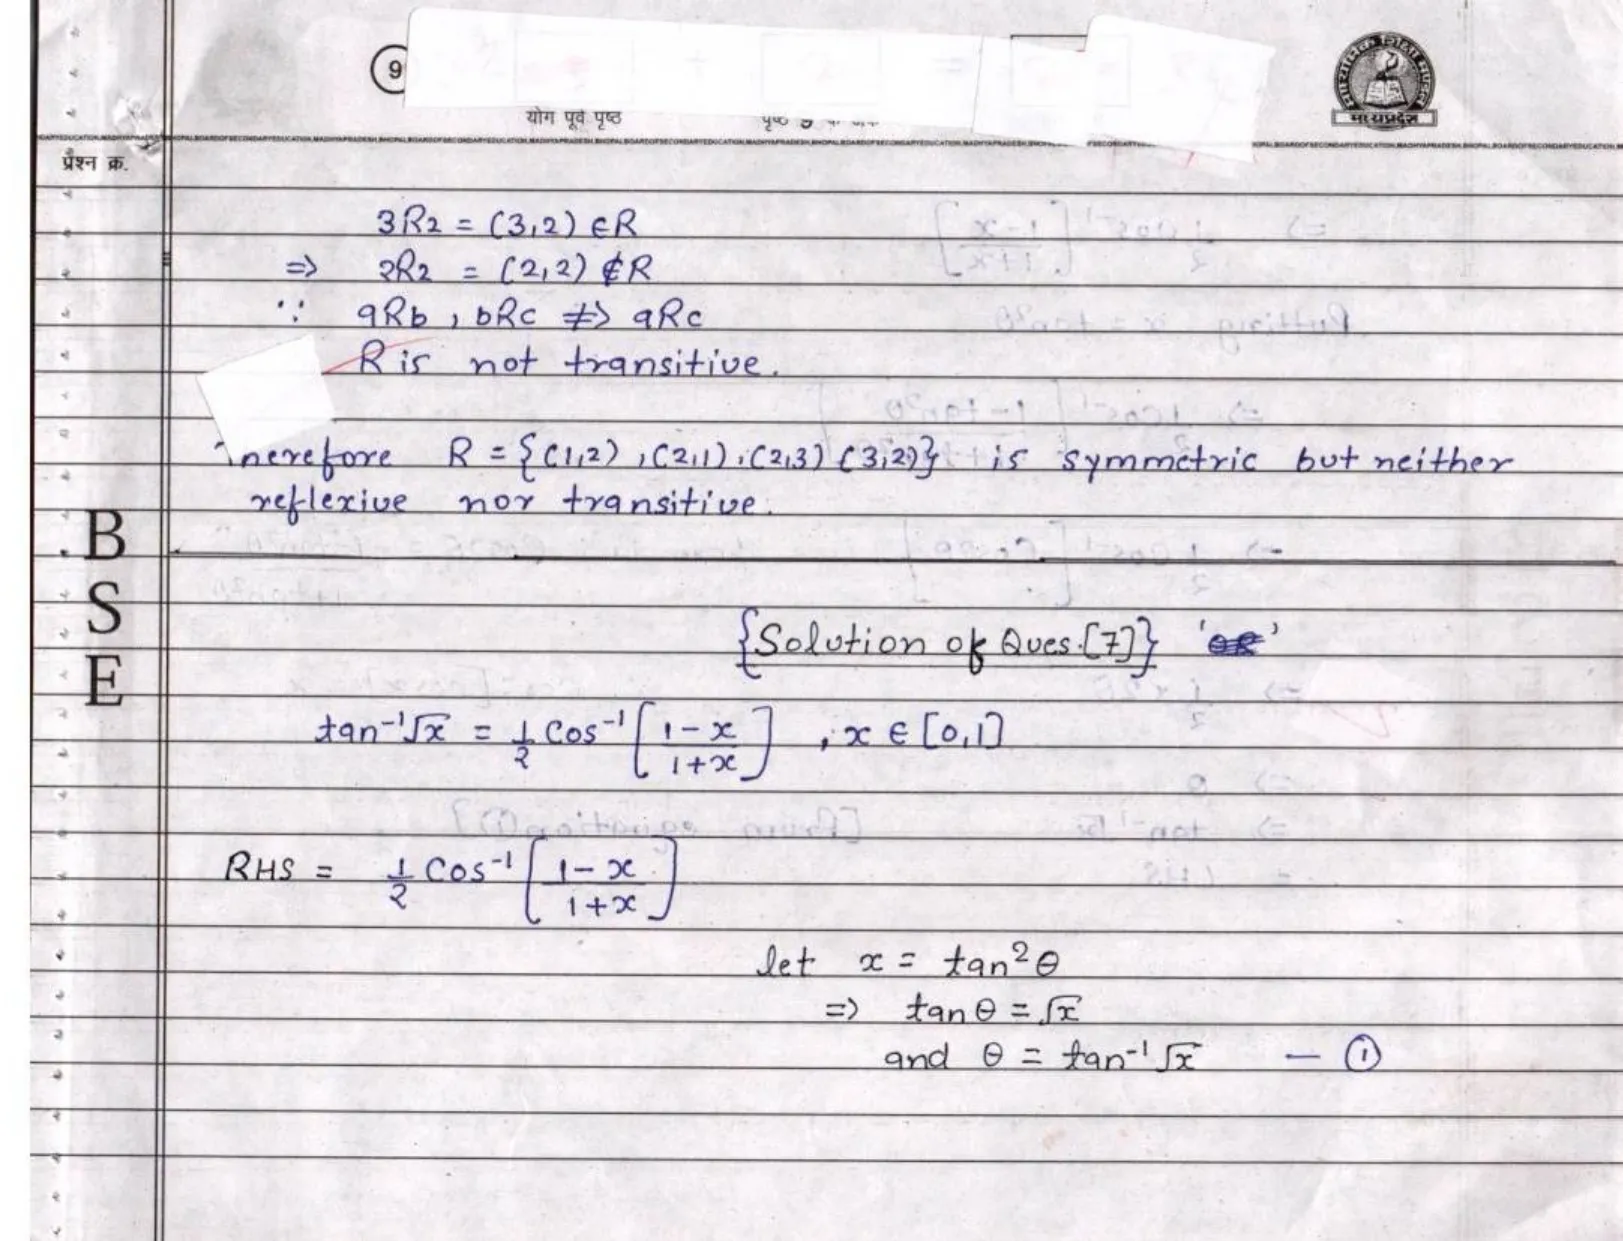 9
योग पूर्व पृष्ठ
मध्यप्रदेश
प्रश्न क्र.
3R2 = (3,2) ∈ R
=> 2R2 = (2,2) ∉ R
∵ aRb, bRc ≠> aRc
R is not transitive.
R = {(1,2), (2,1), (2,3) (3,2)} is symmetric but neither
reflexive nor transitive.
B
S
E
{Solution of Ques.[7]} 'OR'
tan⁻¹√x = 1/2 Cos⁻¹ [1-x / 1+x], x ∈ [0,1]
RHS = 1/2 Cos⁻¹ [1-x / 1+x]
let x = tan²θ
=> tanθ = √x
and θ = tan⁻¹√x — ①